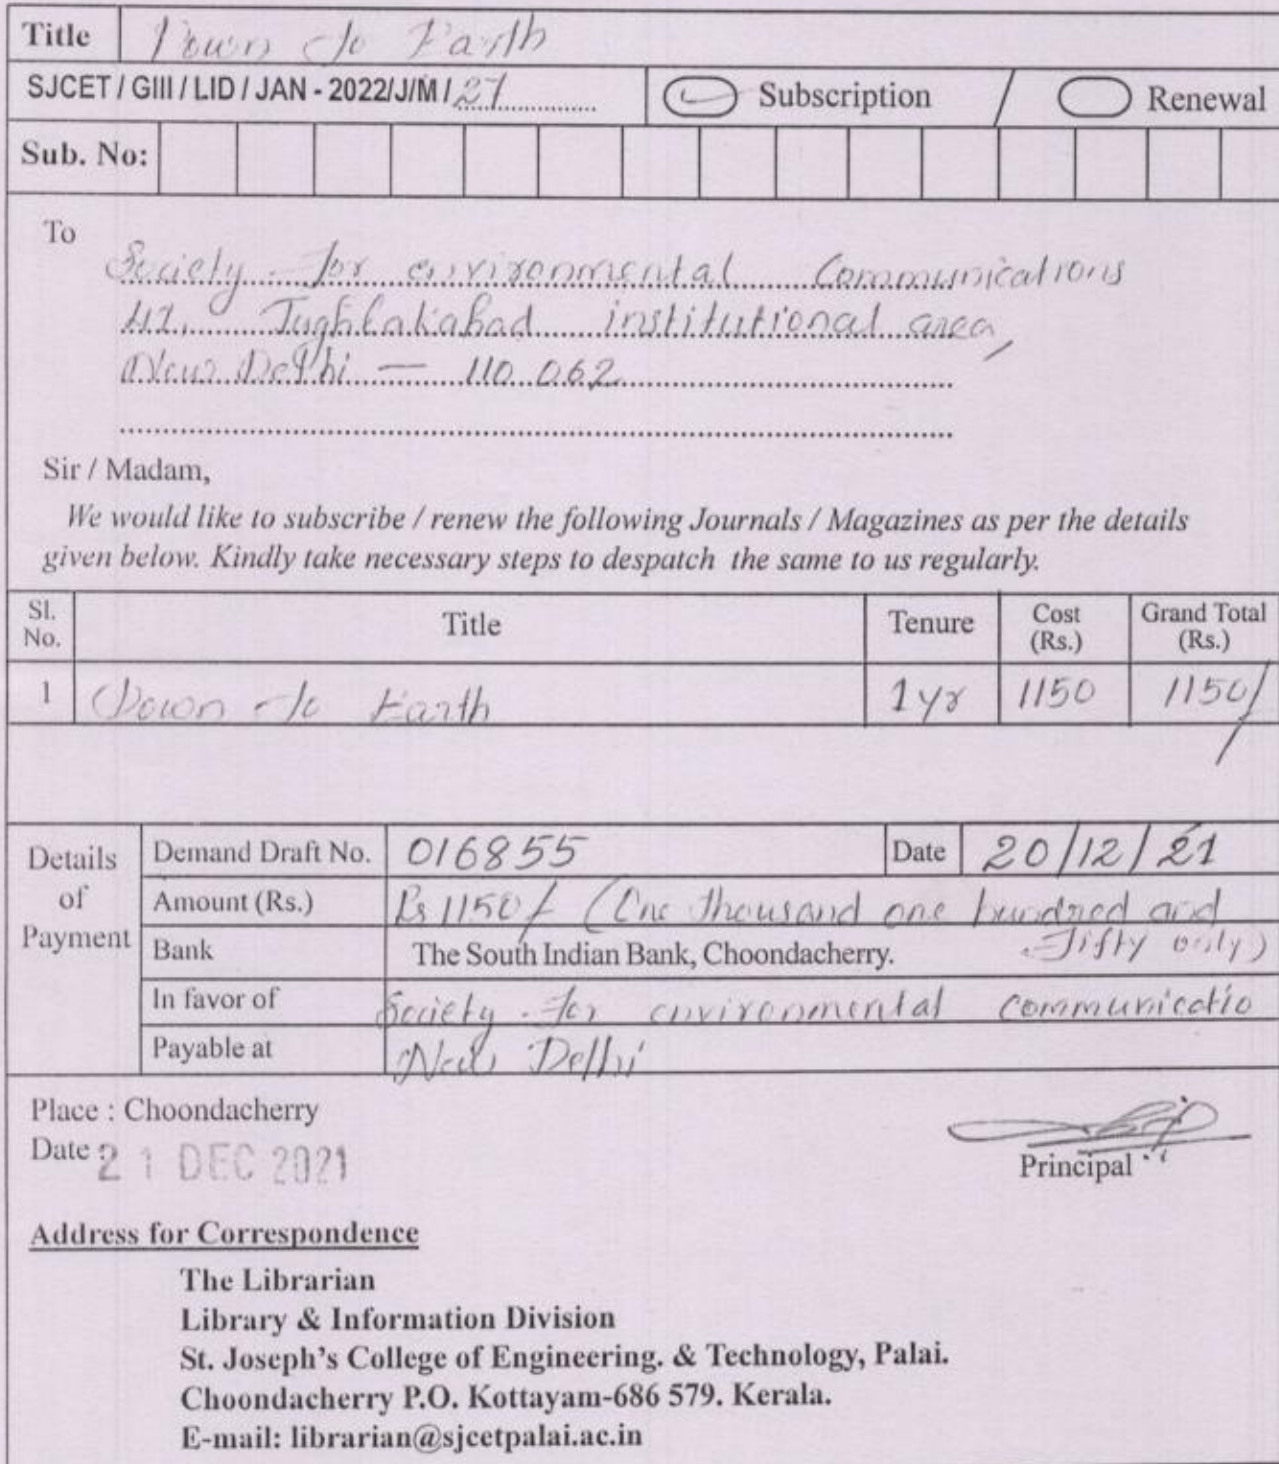 Title Down to Earth
SJCET / GIII / LID / JAN - 2022/J/M / 27 Subscription / Renewal
Sub. No:
To
Society for environmental Communications
41, Tughlakabad institutional area,
New Delhi — 110 062
Sir / Madam,
We would like to subscribe / renew the following Journals / Magazines as per the details
given below. Kindly take necessary steps to despatch the same to us regularly.
Sl. No. Title Tenure Cost (Rs.) Grand Total (Rs.)
1 Down to Earth 1 yr 1150 1150/
Details of Payment
Demand Draft No. 016855 Date 20/12/21
Amount (Rs.) Rs 1150/- (One thousand one hundred and
fifty only)
Bank The South Indian Bank, Choondacherry.
In favor of Society for environmental communicatio
Payable at New Delhi
Place : Choondacherry
Date : 21 DEC 2021
Principal
Address for Correspondence
The Librarian
Library & Information Division
St. Joseph's College of Engineering. & Technology, Palai.
Choondacherry P.O. Kottayam-686 579. Kerala.
E-mail: librarian@sjcetpalai.ac.in